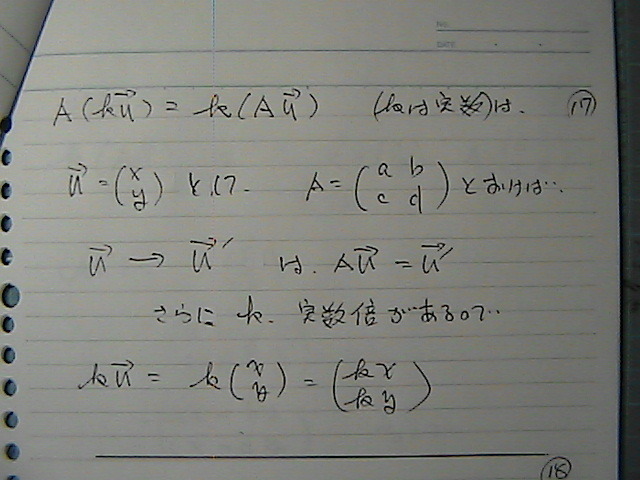 NO.
DATE
A(ku⃗) = k(Au⃗) (kは実数)は. ⑰
u⃗ = (x y) として. A = (a b c d) とおけば…
u⃗ → u⃗′ は. Au⃗ = u⃗′
さらに k. 実数倍があるので…
ku⃗ = k(x y) = (kx ky)
⑱